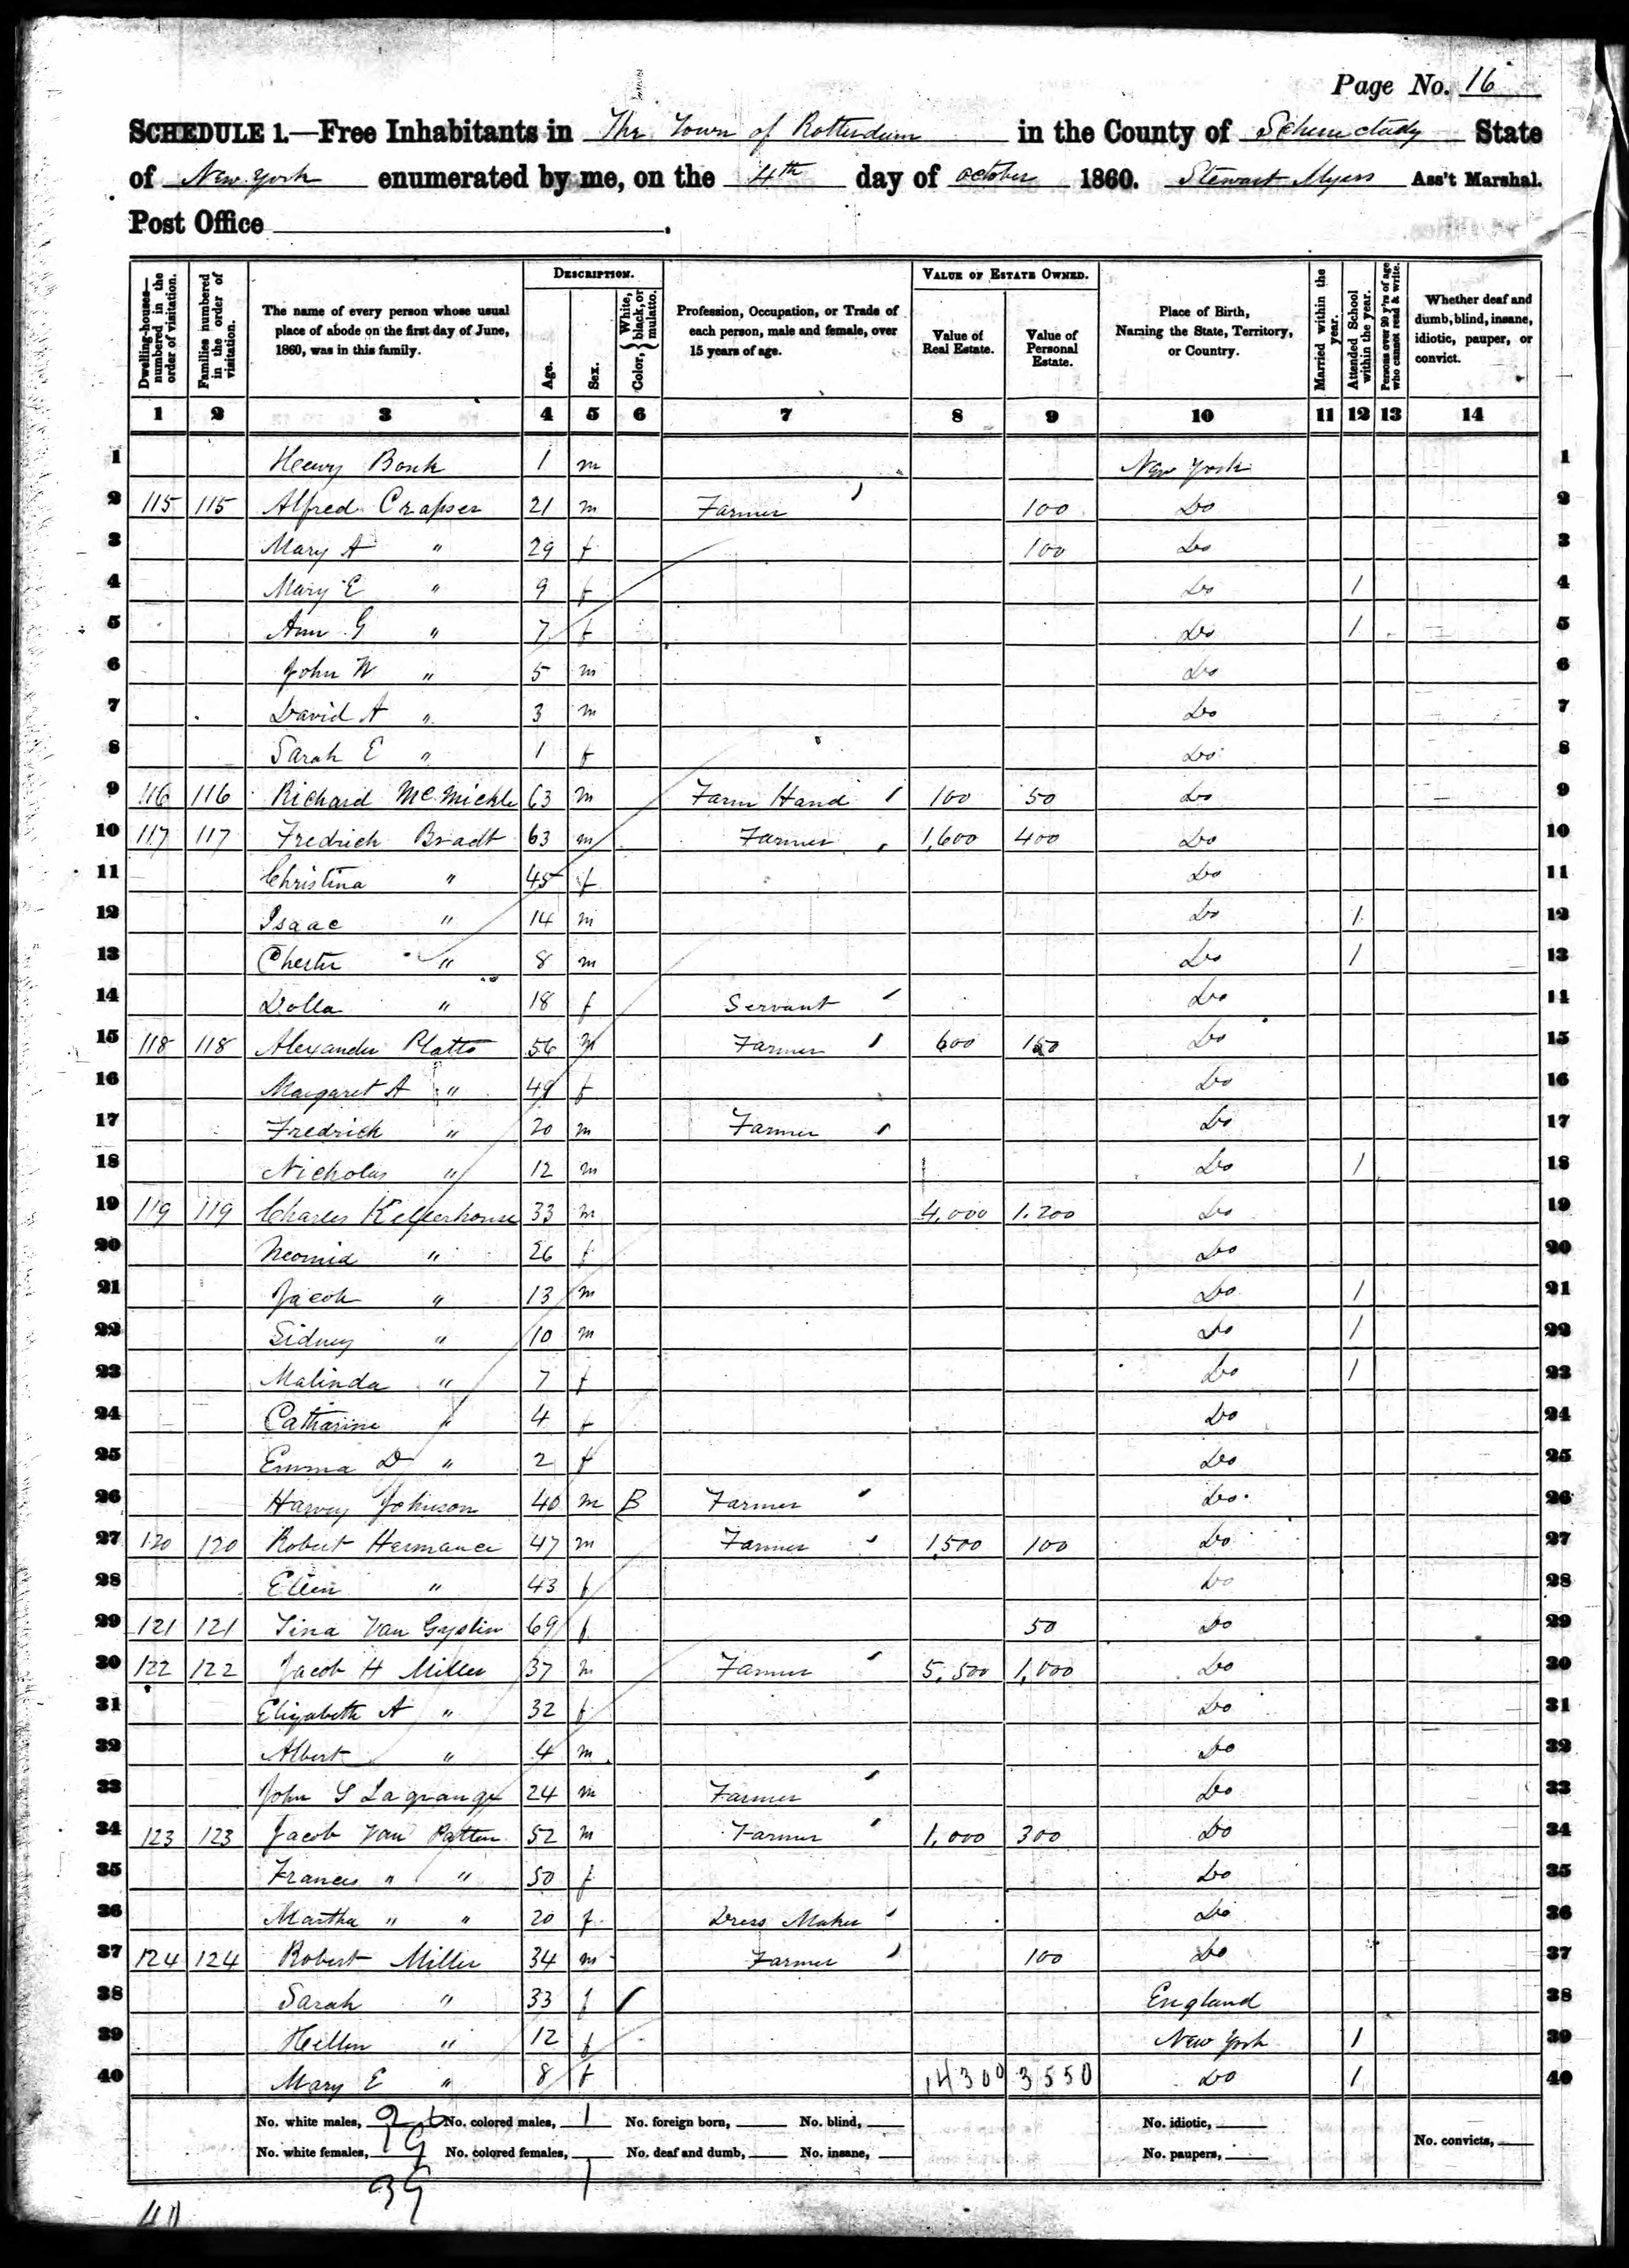 Page No. 16
SCHEDULE 1.—Free Inhabitants in The Town of Rotterdam in the County of Schenectady State
of New York enumerated by me, on the 4th day of October 1860. Stewart Myers Ass't Marshal.
Post Office
DESCRIPTION. VALUE OF ESTATE OWNED.
Dwelling-houses—numbered in the order of visitation. Families numbered in the order of visitation. The name of every person whose usual place of abode on the first day of June, 1860, was in this family. Age. Sex. Color, { White, black, or mulatto. Profession, Occupation, or Trade of each person, male and female, over 15 years of age. Value of Real Estate. Value of Personal Estate. Place of Birth, Naming the State, Territory, or Country. Married within the year. Attended School within the year. Persons over 20 y'rs of age who cannot read & write. Whether deaf and dumb, blind, insane, idiotic, pauper, or convict.
1 2 3 4 5 6 7 8 9 10 11 12 13 14
1 Henry Bouk 1 m New York 1
2 115 115 Alfred Crapser 21 m Farmer 100 Do 2
3 Mary A " 29 f 100 Do 3
4 Mary E " 9 f Do 1 4
5 Ann G " 7 f Do 1 5
6 John W " 5 m Do 6
7 David A " 3 m Do 7
8 Sarah E " 1 f Do 8
9 116 116 Richard McMickle 63 m Farm Hand 100 50 Do 9
10 117 117 Fredrich Bradt 63 m Farmer 1,600 400 Do 10
11 Christina " 45 f Do 11
12 Isaac " 14 m Do 1 12
13 Chester " 8 m Do 1 13
14 Dolla " 18 f Servant Do 14
15 118 118 Alexander Platto 56 m Farmer 600 150 Do 15
16 Margaret A " 49 f Do 16
17 Fredrick " 20 m Farmer Do 17
18 Nicholas " 12 m Do 1 18
19 119 119 Charles Kellerhouse 33 m 4,000 1.200 Do 19
20 Neomia " 26 f Do 20
21 Jacob " 13 m Do 1 21
22 Sidney " 10 m Do 1 22
23 Malinda " 7 f Do 1 23
24 Catharine " 4 f Do 24
25 Emma D " 2 f Do 25
26 Harvey Johnson 40 m B Farmer Do 26
27 120 120 Robert Hermance 47 m Farmer 1,500 100 Do 27
28 Ellen " 43 f Do 28
29 121 121 Tina Van Gyslin 69 f 50 Do 29
30 122 122 Jacob H Miller 37 m Farmer 5,500 1,000 Do 30
31 Elizabeth A " 32 f Do 31
32 Albert " 4 m Do 32
33 John S Lagrange 24 m Farmer Do 33
34 123 123 Jacob Van Patten 52 m Farmer 1,000 300 Do 34
35 Frances " " 50 f Do 35
36 Martha " " 20 f Dress Maker Do 36
37 124 124 Robert Miller 34 m Farmer 100 Do 37
38 Sarah " 33 f England 38
39 Hellen " 12 f New York 1 39
40 Mary E " 8 f 14300 3550 Do 1 40
No. white males, 20 No. colored males, 1 No. foreign born, No. blind, No. idiotic,
No. white females, 19 No. colored females, No. deaf and dumb, No. insane, No. paupers, No. convicts,
39 1